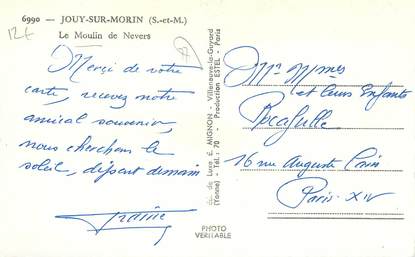 6990 - JOUY-SUR-MORIN (S.-et-M.)
12€
Le Moulin de Nevers
Merçi de votre
carte, recevez notre
amical souvenir,
nous cherchons le
soleil, départ demain
Mr Mmes
et leurs Enfants
16 rue Auguste Cain
Paris-XIV
de Luxe E. MIGNON - Villeneuve-la-Guyard
(Yonne) - Tél. 70 - Production ESTEL - Paris
PHOTO
VERITABLE